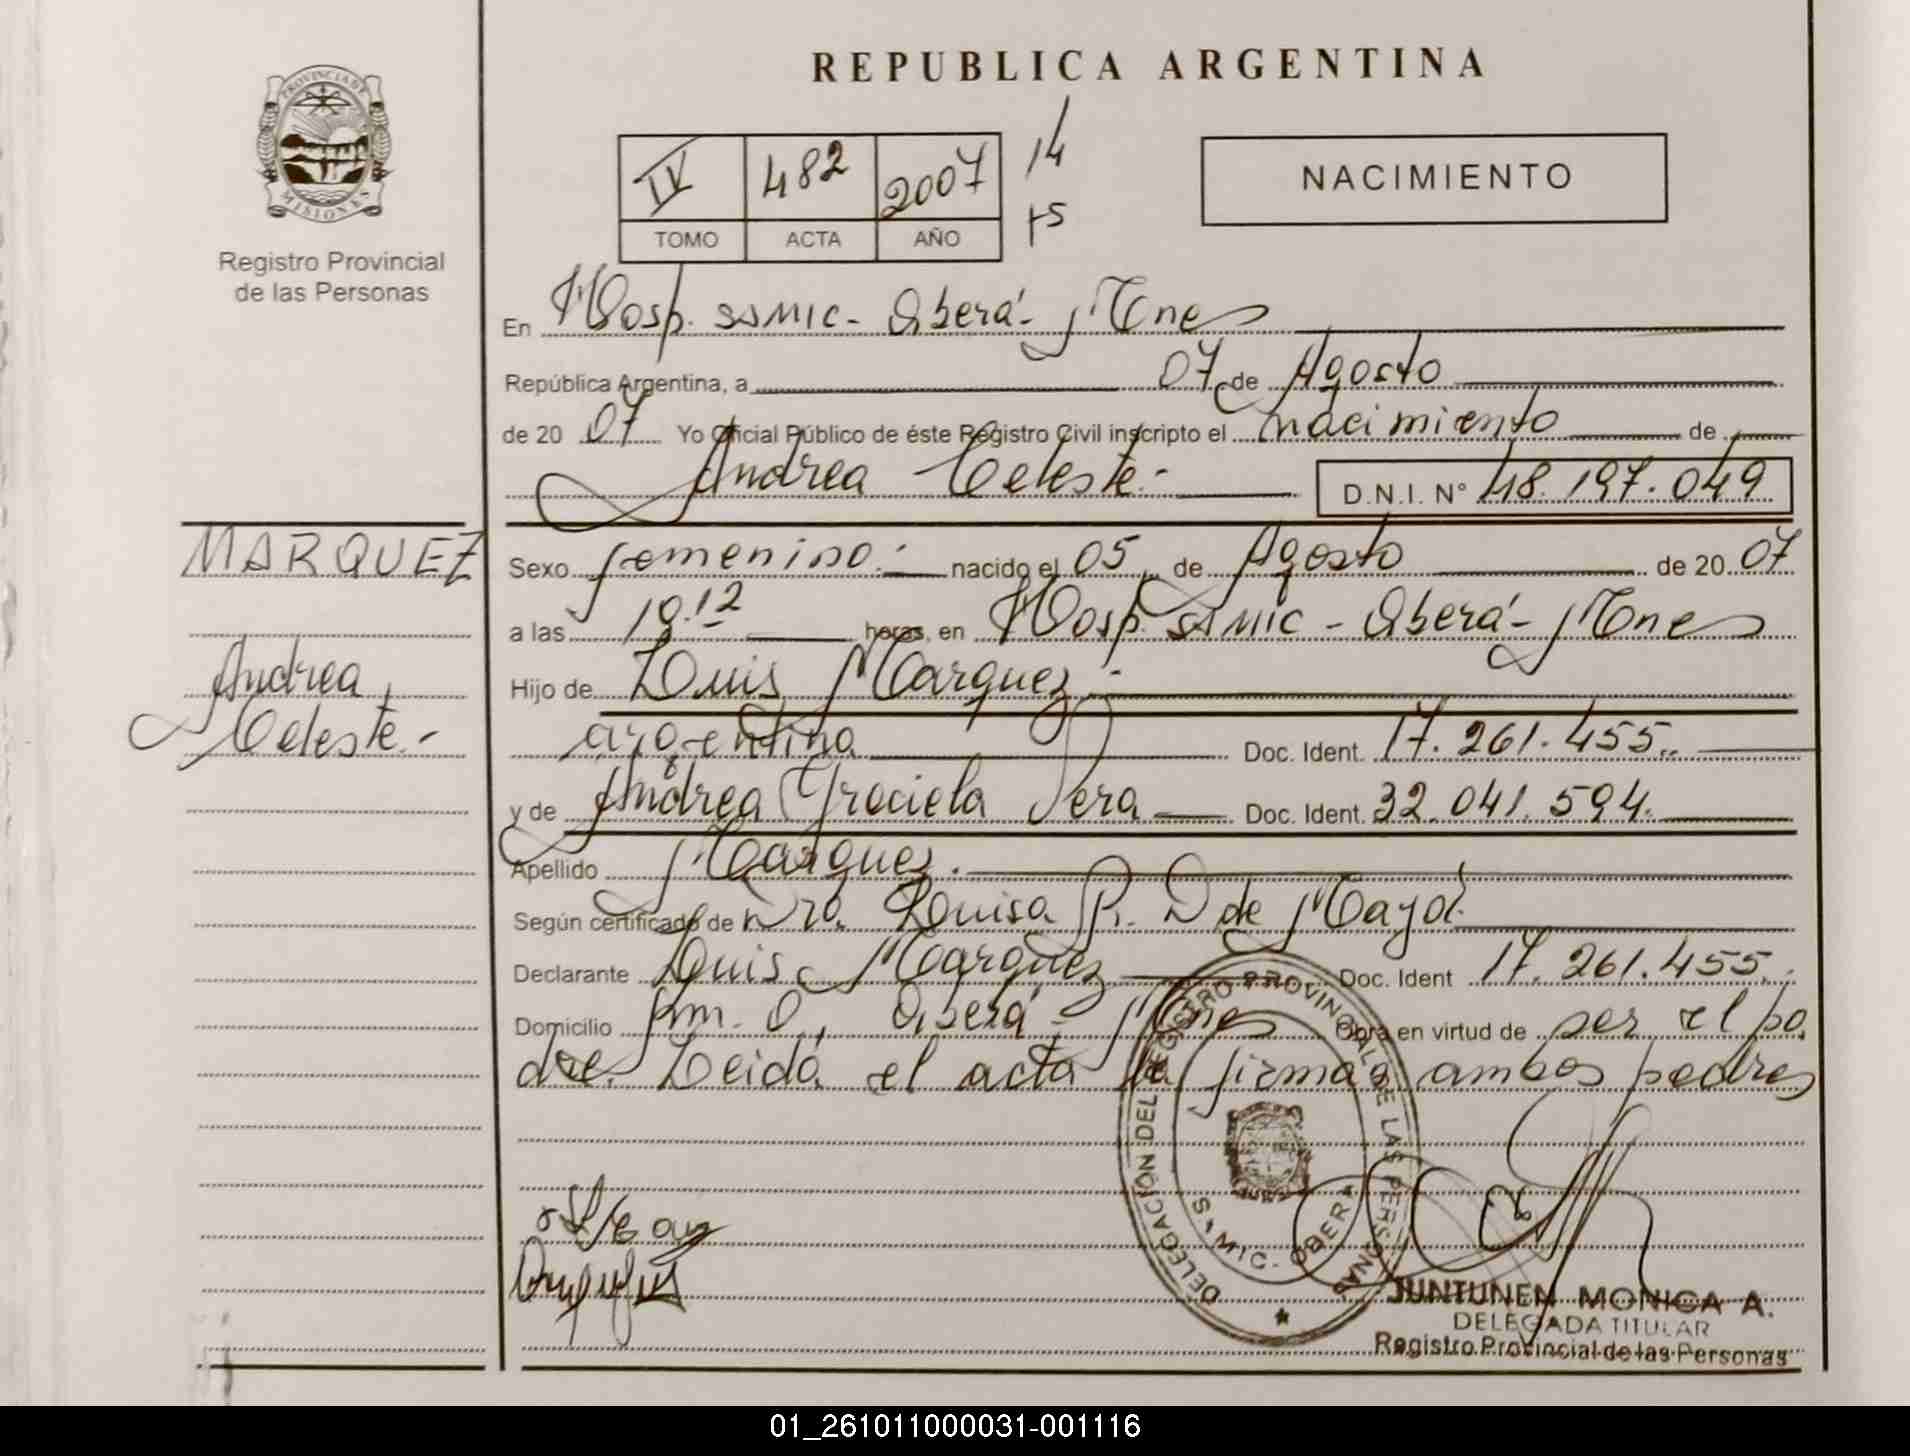 REPUBLICA ARGENTINA
PROVINCIA DE
MISIONES
Registro Provincial
de las Personas
IV 482 2007
TOMO ACTA AÑO
14
15
NACIMIENTO
En Hosp. SAMIC - Oberá - Mnes
República Argentina, a 07 de Agosto
de 2007 Yo Oficial Público de éste Registro Civil inscripto el nacimiento de
Andrea Celeste.- D.N.I. N° 48.197.049
MARQUEZ
Andrea
Celeste.-
Sexo femenino.- nacido el 05 de Agosto de 2007
a las 19.12 horas, en Hosp. SAMIC - Oberá - Mnes
Hijo de Luis Marquez.-
argentina Doc. Ident. 17.261.455.
y de Andrea Graciela Vera Doc. Ident. 32.041.594.
Apellido Marquez.
Según certificado de Dra. Luisa P. D de Mayol.
Declarante Luis Marquez Doc. Ident 17.261.455.
Domicilio Km. 0, Oberá - Mnes Obra en virtud de ser el pa
dre. Leida el acta la firman ambos padres
DELEGACION DEL REGISTRO PROVINCIAL DE LAS PERSONAS
S.A.MIC. OBERA
JUNTUNEN MONICA A.
DELEGADA TITULAR
Registro Provincial de las Personas
01_261011000031-001116